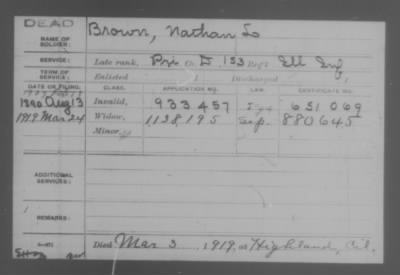 DEAD
NAME OF SOLDIER: Brown, Nathan L
SERVICE: Late rank, Pvt Co. D, 153 Reg't Ill Inf
TERM OF SERVICE: Enlisted 1 Discharged 1
DATE OF FILING. CLASS. APPLICATION NO. LAW. CERTIFICATE NO.
1890 Aug 13 Invalid, 933457 631069
1919 Mar 24 Widow, 1138195 880645
Minor,
ADDITIONAL SERVICES:
REMARKS:
Died Mar 3, 1919, at Highland, Cal.